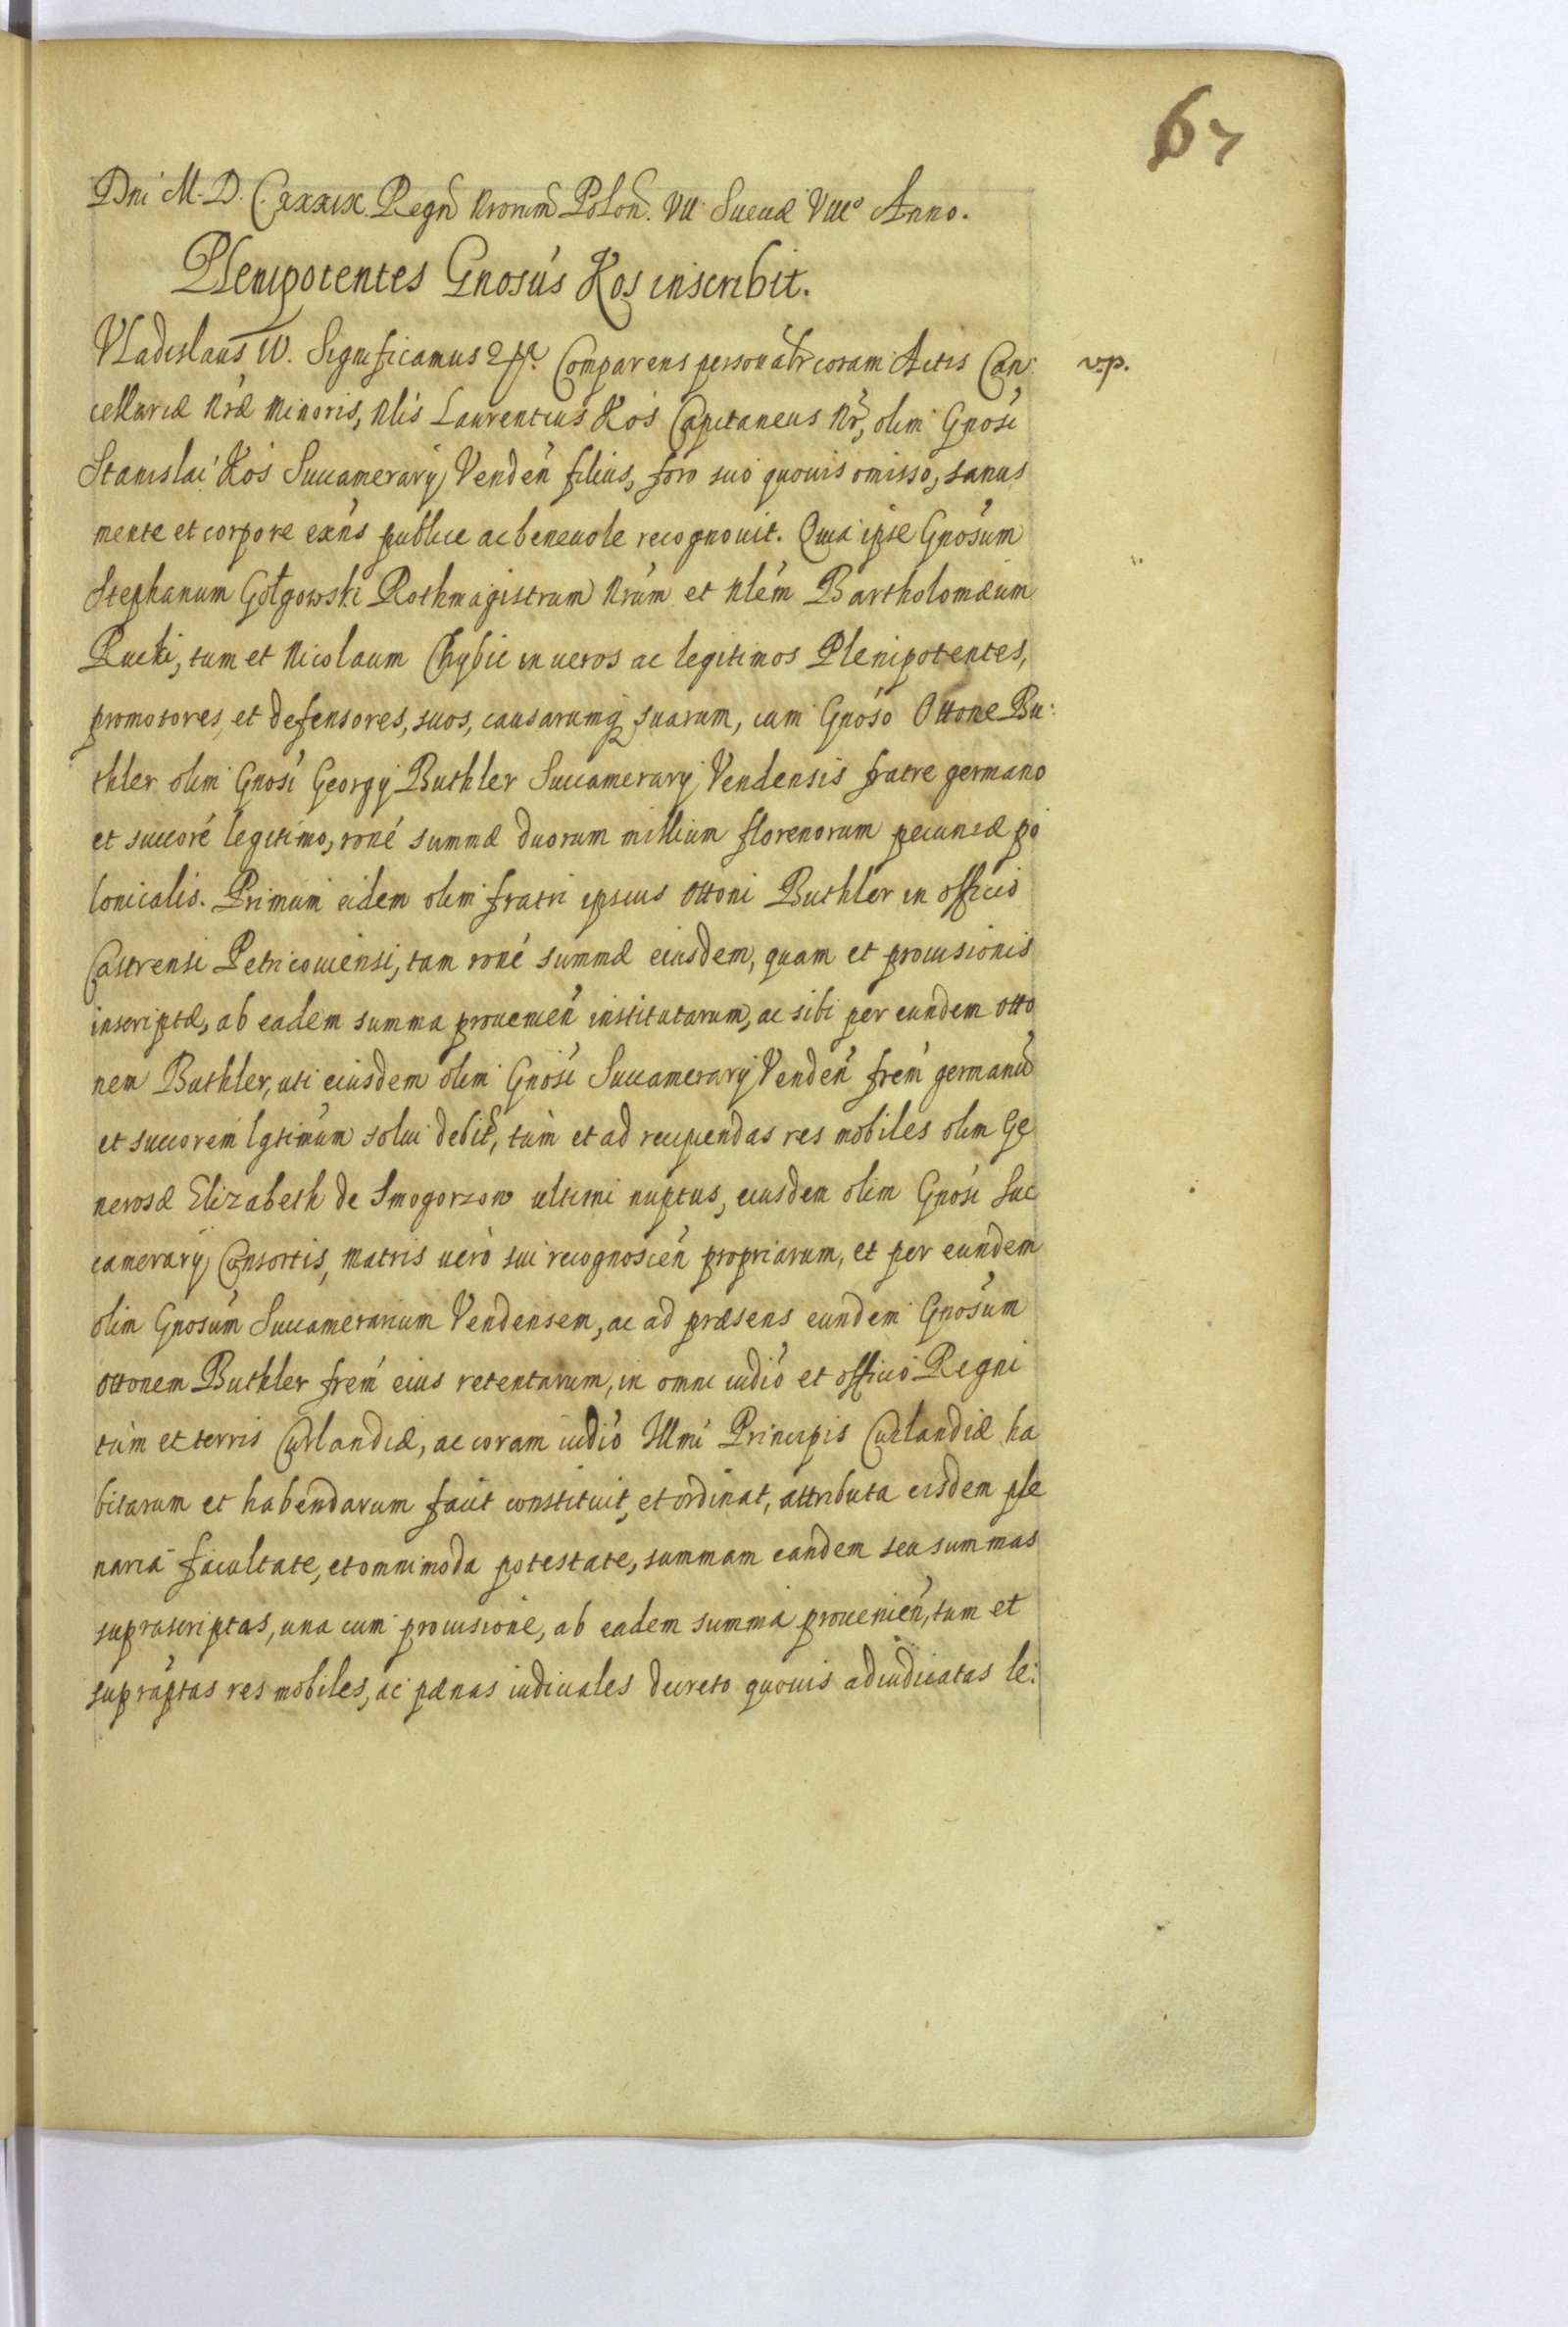 67
Dni M. D. C. xxxix. Regn̄ Nrorum Polon̄. VII. Sueuæ VIIIo Anno.
Plenipotentes Gnosus Kos inscribit.
Vladislaus IV. Significamus Comparens personalr coram Actis Can:
v.p.
cellariæ Nræ Minoris, Nlis Laurentius Kos Capitaneus Nr, olim Gnosi
Stanislai Kos Succamerarÿ Venden̄ filius, foro suo quouis omisso, sanus
mente et corpore exn̄s publice ac beneuole recognouit. Quia ipse Gnosum
Stephanum Gołgowski Rothmagistrum Nrum et Nlem Bartholomæum
Rucki, tum et Nicolaum Chybic in ueros ac legitimos Plenipotentes,
promotores et defensores, suos, causarumq suarum, cum Gnoso Ottone Bu:
thler olim Gnosi Georgÿ Buthler Succamerarÿ Vendensis fratre germano
et succore legitimo, rone summæ duorum millium florenorum pecuniæ po
lonicalis. Primum eidem olim fratri ipsius Ottoni Buthler in officio
Castrensi Petricouiensi, tam rone summæ eiusdem, quam et prouisionis
inscriptæ, ab eadem summa prouenien̄ institutarum, ac sibi per eundem Otto
nem Buthler, uti eiusdem olim Gnosi Succamerarÿ Venden̄ frem germanū
et succorem lgtimum solui debit, tum et ad recipiendas res mobiles olim Ge
nerosæ Elizabeth de Smogorzow ultimi nuptus, eiusdem olim Gnosi Suc
camerarÿ Consortis, Matris uero sui recognoscen̄ propriarum, et per eundem
olim Gnosum Succamerarium Vendensem, ac ad præsens eundem Gnosum
Ottonem Buthler frem eius retentarum, in omni iudio et officio Regni
tum et terris Curlandiæ, ac coram iudio Illmi Principis Curlandiæ ha
bitarum et habendarum facit constituit, et ordinat, attributa eisdem ple
naria facultate, et omnimoda potestate, summam eandem seu summas
suprascriptas, una cum prouisione, ab eadem summa prouenien̄, tum et
supraptas res mobiles, ac pænas iudiciales decreto quouis adiudicatas le: